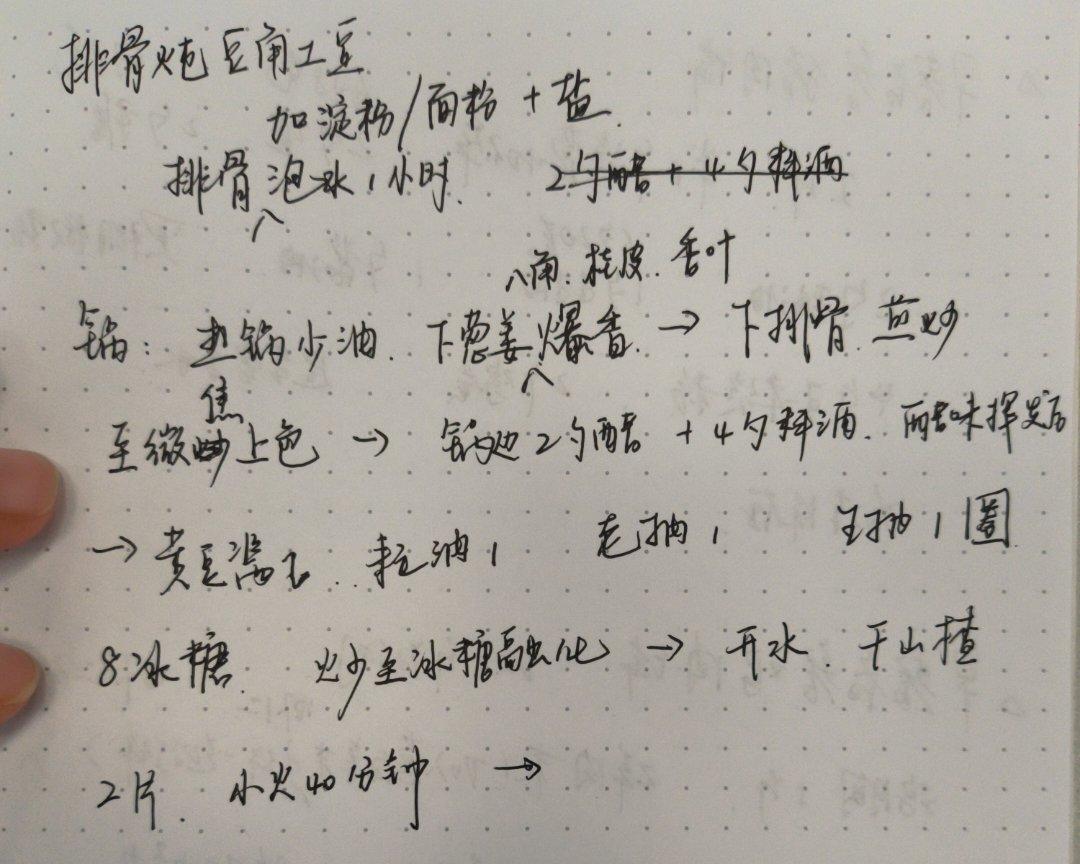 排骨炖豆角土豆
加淀粉/面粉 + 盐
排骨泡水1小时. 2勺醋 + 4勺料酒
八角. 桂皮. 香叶
锅: 热锅少油. 下葱姜爆香. → 下排骨. 煎炒
焦
至微上色 → 锅边2勺醋 + 4勺料酒. 醋味挥发后
→ 黄豆酱 2. 蚝油1 老抽1 生抽1圈
8冰糖. 炒至冰糖融化 → 开水. 干山楂
2片. 小火40分钟 →